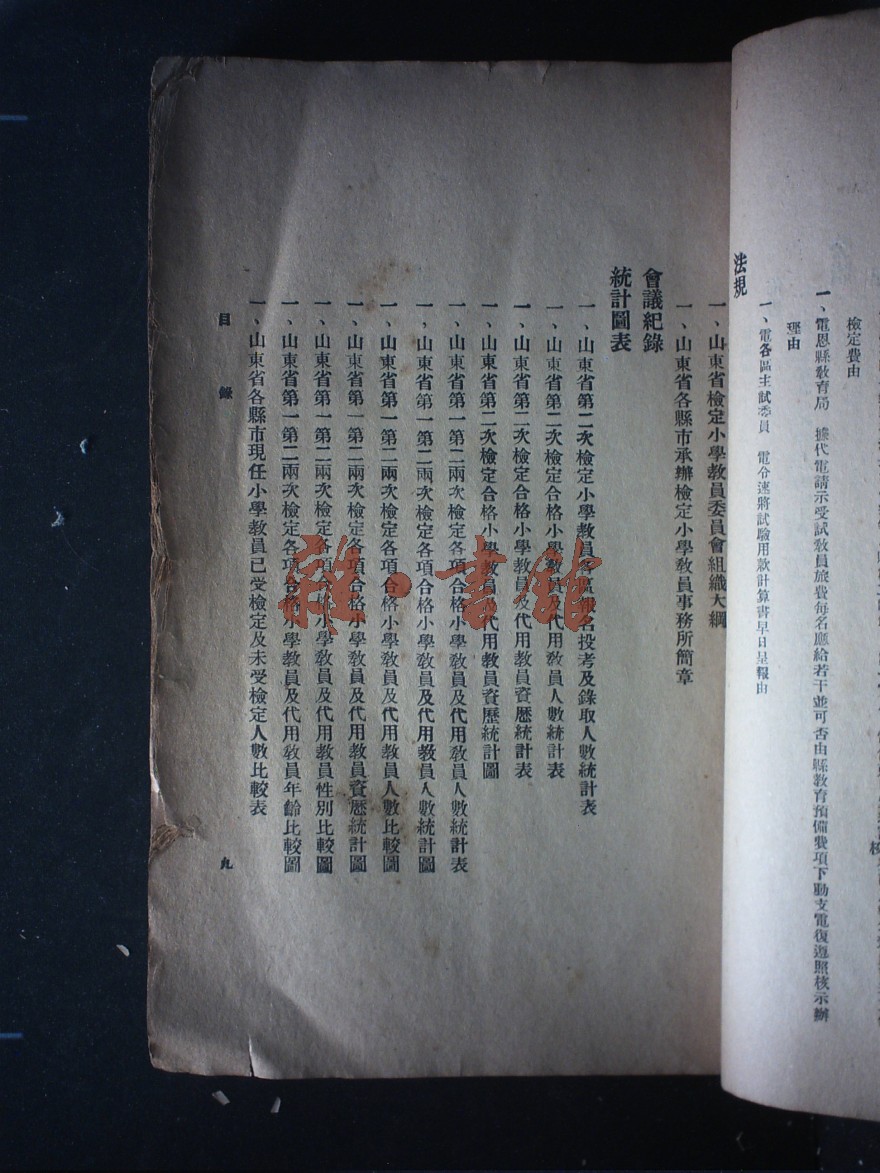 檢定費由
一、電恩縣教育局　據代電請示受試教員旅費每名應給若干並可否由縣教育預備費項下動支電復遵照核示辦
理由
一、電各區主試委員　電令速將試驗用款計算書早日呈報由
法規
一、山東省檢定小學教員委員會組織大綱
一、山東省各縣市承辦檢定小學教員事務所簡章
會議紀錄
統計圖表
一、山東省第二次檢定小學教員各區報名投考及錄取人數統計表
一、山東省第二次檢定合格小學教員及代用教員人數統計表
一、山東省第二次檢定合格小學教員及代用教員資歷統計表
一、山東省第二次檢定合格小學教員代用教員資歷統計圖
一、山東省第一第二兩次檢定各項合格小學教員及代用教員人數統計表
一、山東省第一第二兩次檢定各項合格小學教員及代用教員人數統計圖
一、山東省第一第二兩次檢定各項合格小學教員及代用教員人數比較圖
一、山東省第一第二兩次檢定各項合格小學教員及代用教員資歷統計圖
一、山東省第一第二兩次檢定各項合格小學教員及代用教員性別比較圖
一、山東省第一第二兩次檢定各項合格小學教員及代用教員年齡比較圖
一、山東省各縣市現任小學教員已受檢定及未受檢定人數比較表
目錄
九
雅·書館